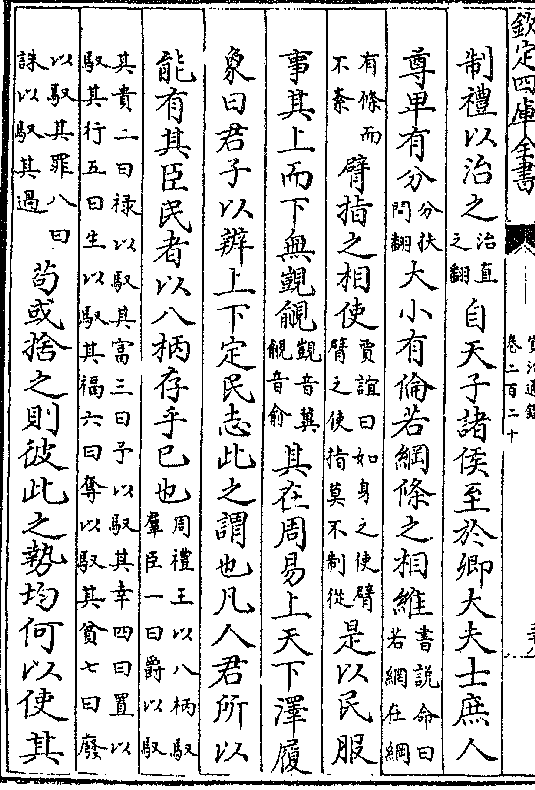 欽定四庫全書
資治通鑑
卷二百二十
制禮以治之治直之翻自天子諸侯至於卿大夫士庶人
尊卑有分分扶問翻大小有倫若綱條之相維書說命曰若網在綱
有條而不紊臂指之相使賈誼曰如身之使臂臂之使指莫不制從是以民服
事其上而下無覬覦覬音冀覦音俞其在周易上天下澤履
象曰君子以辨上下定民志此之謂也凡人君所以
能有其臣民者以八柄存乎已也周禮王以八柄馭羣臣一曰爵以馭
其貴二曰禄以馭其富三曰予以馭其幸四曰置以馭其行五曰生以馭其福六曰奪以馭其貧七曰廢
以馭其罪八曰誅以馭其過苟或捨之則彼此之勢均何以使其